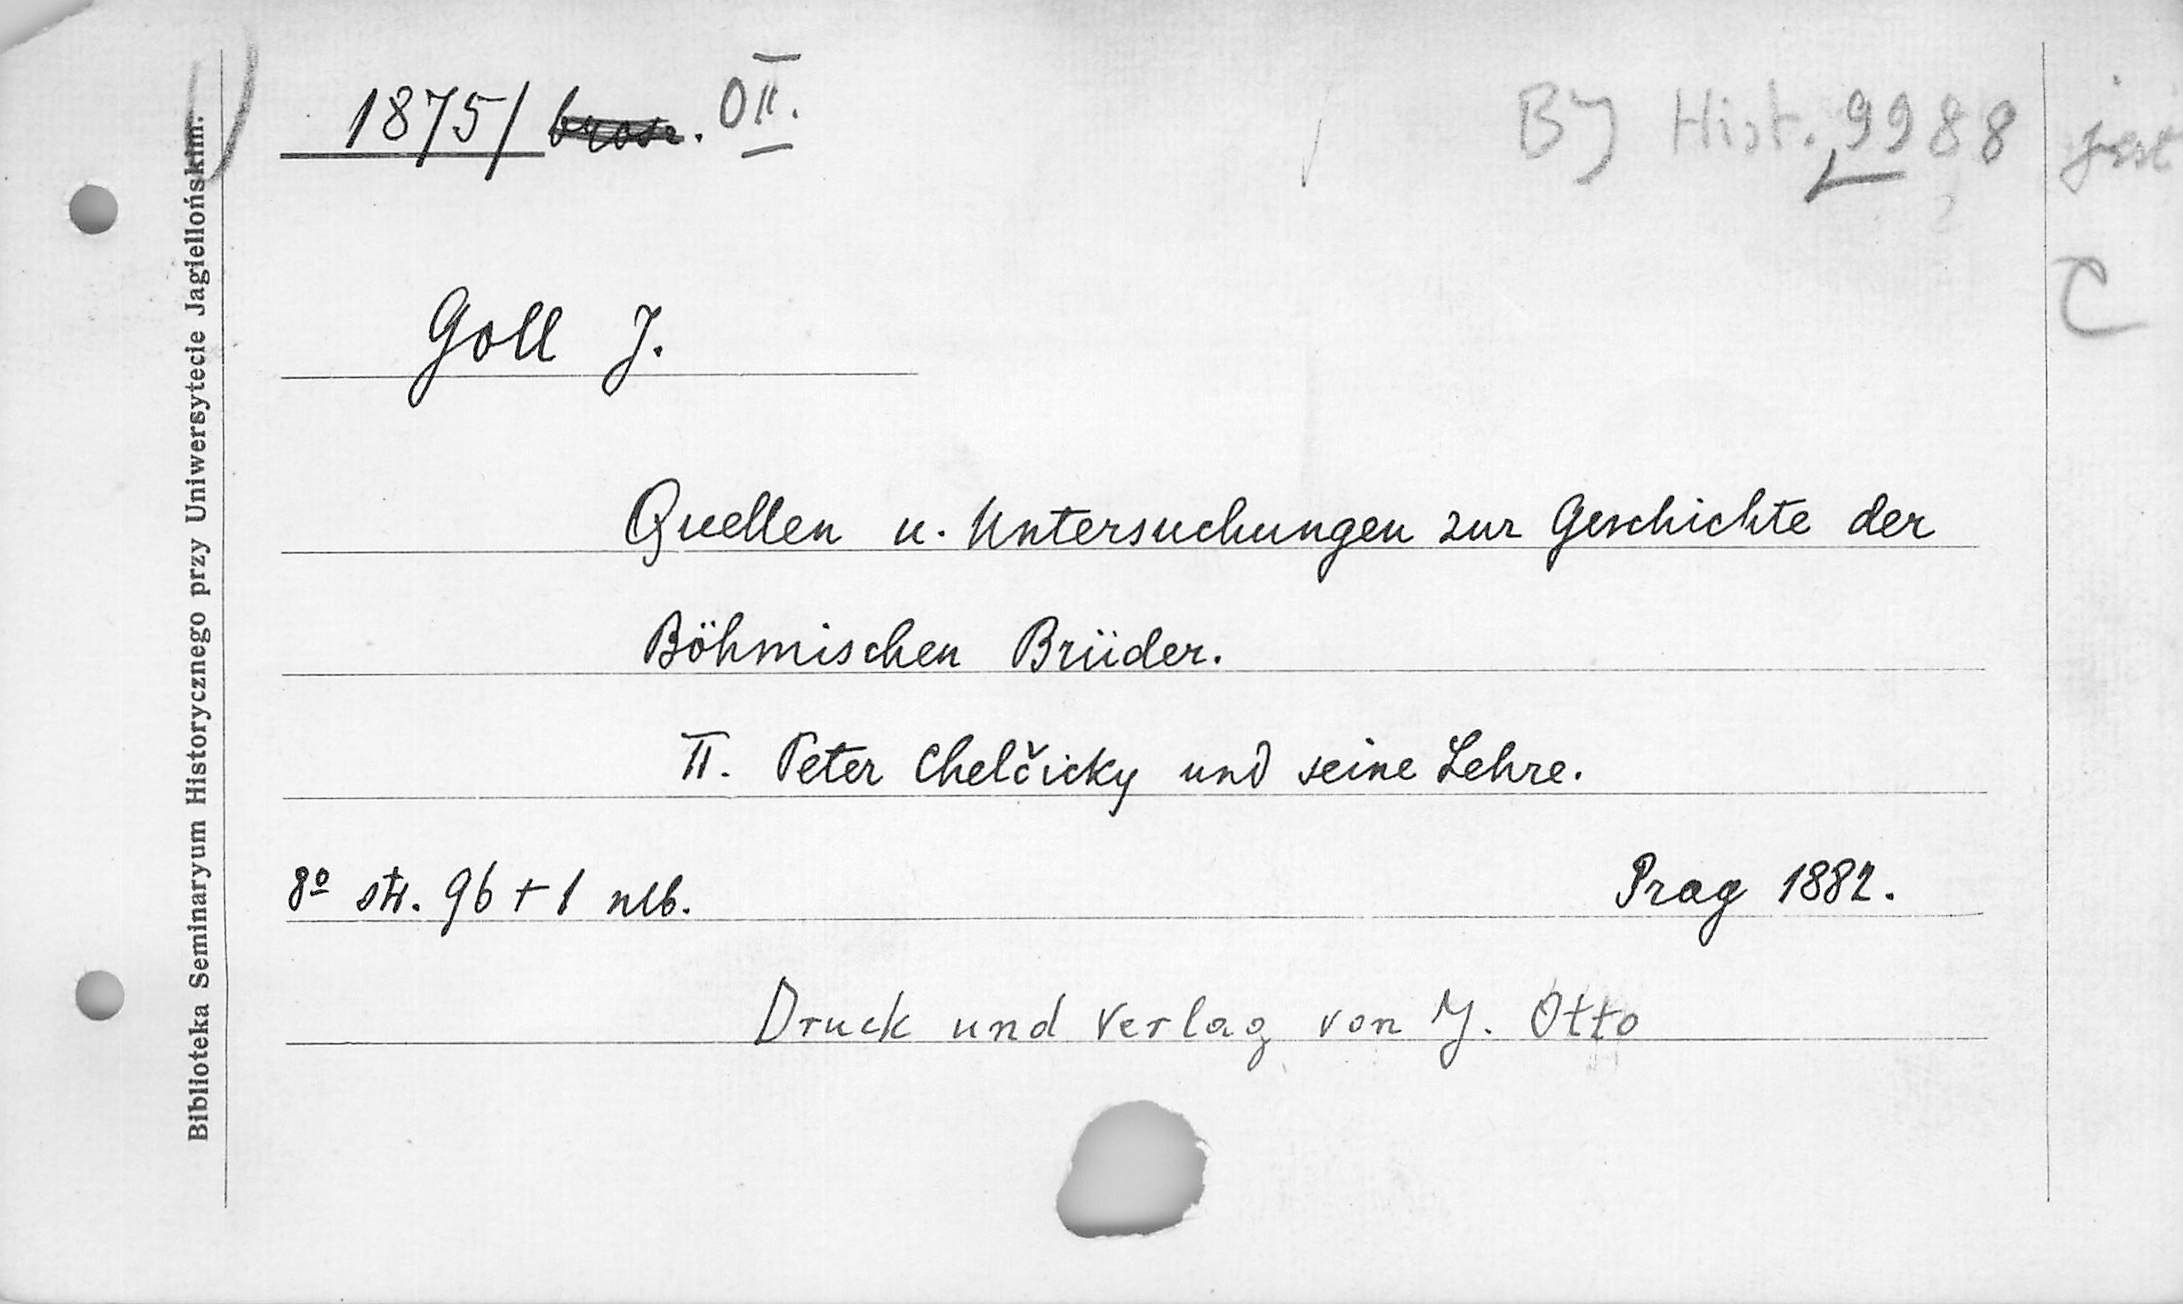 1875/ brosz. OII.
BJ Hist. 9988 jest
C
Goll J.
Quellen u. Untersuchungen zur Geschichte der
Böhmischen Brüder.
II. Peter Chelčicky und seine Lehre.
8º str. 96 + 1 nlb. Prag 1882.
Druck und Verlag von J. Otto
Biblioteka Seminaryum Historycznego przy Uniwersytecie Jagiellońskim.